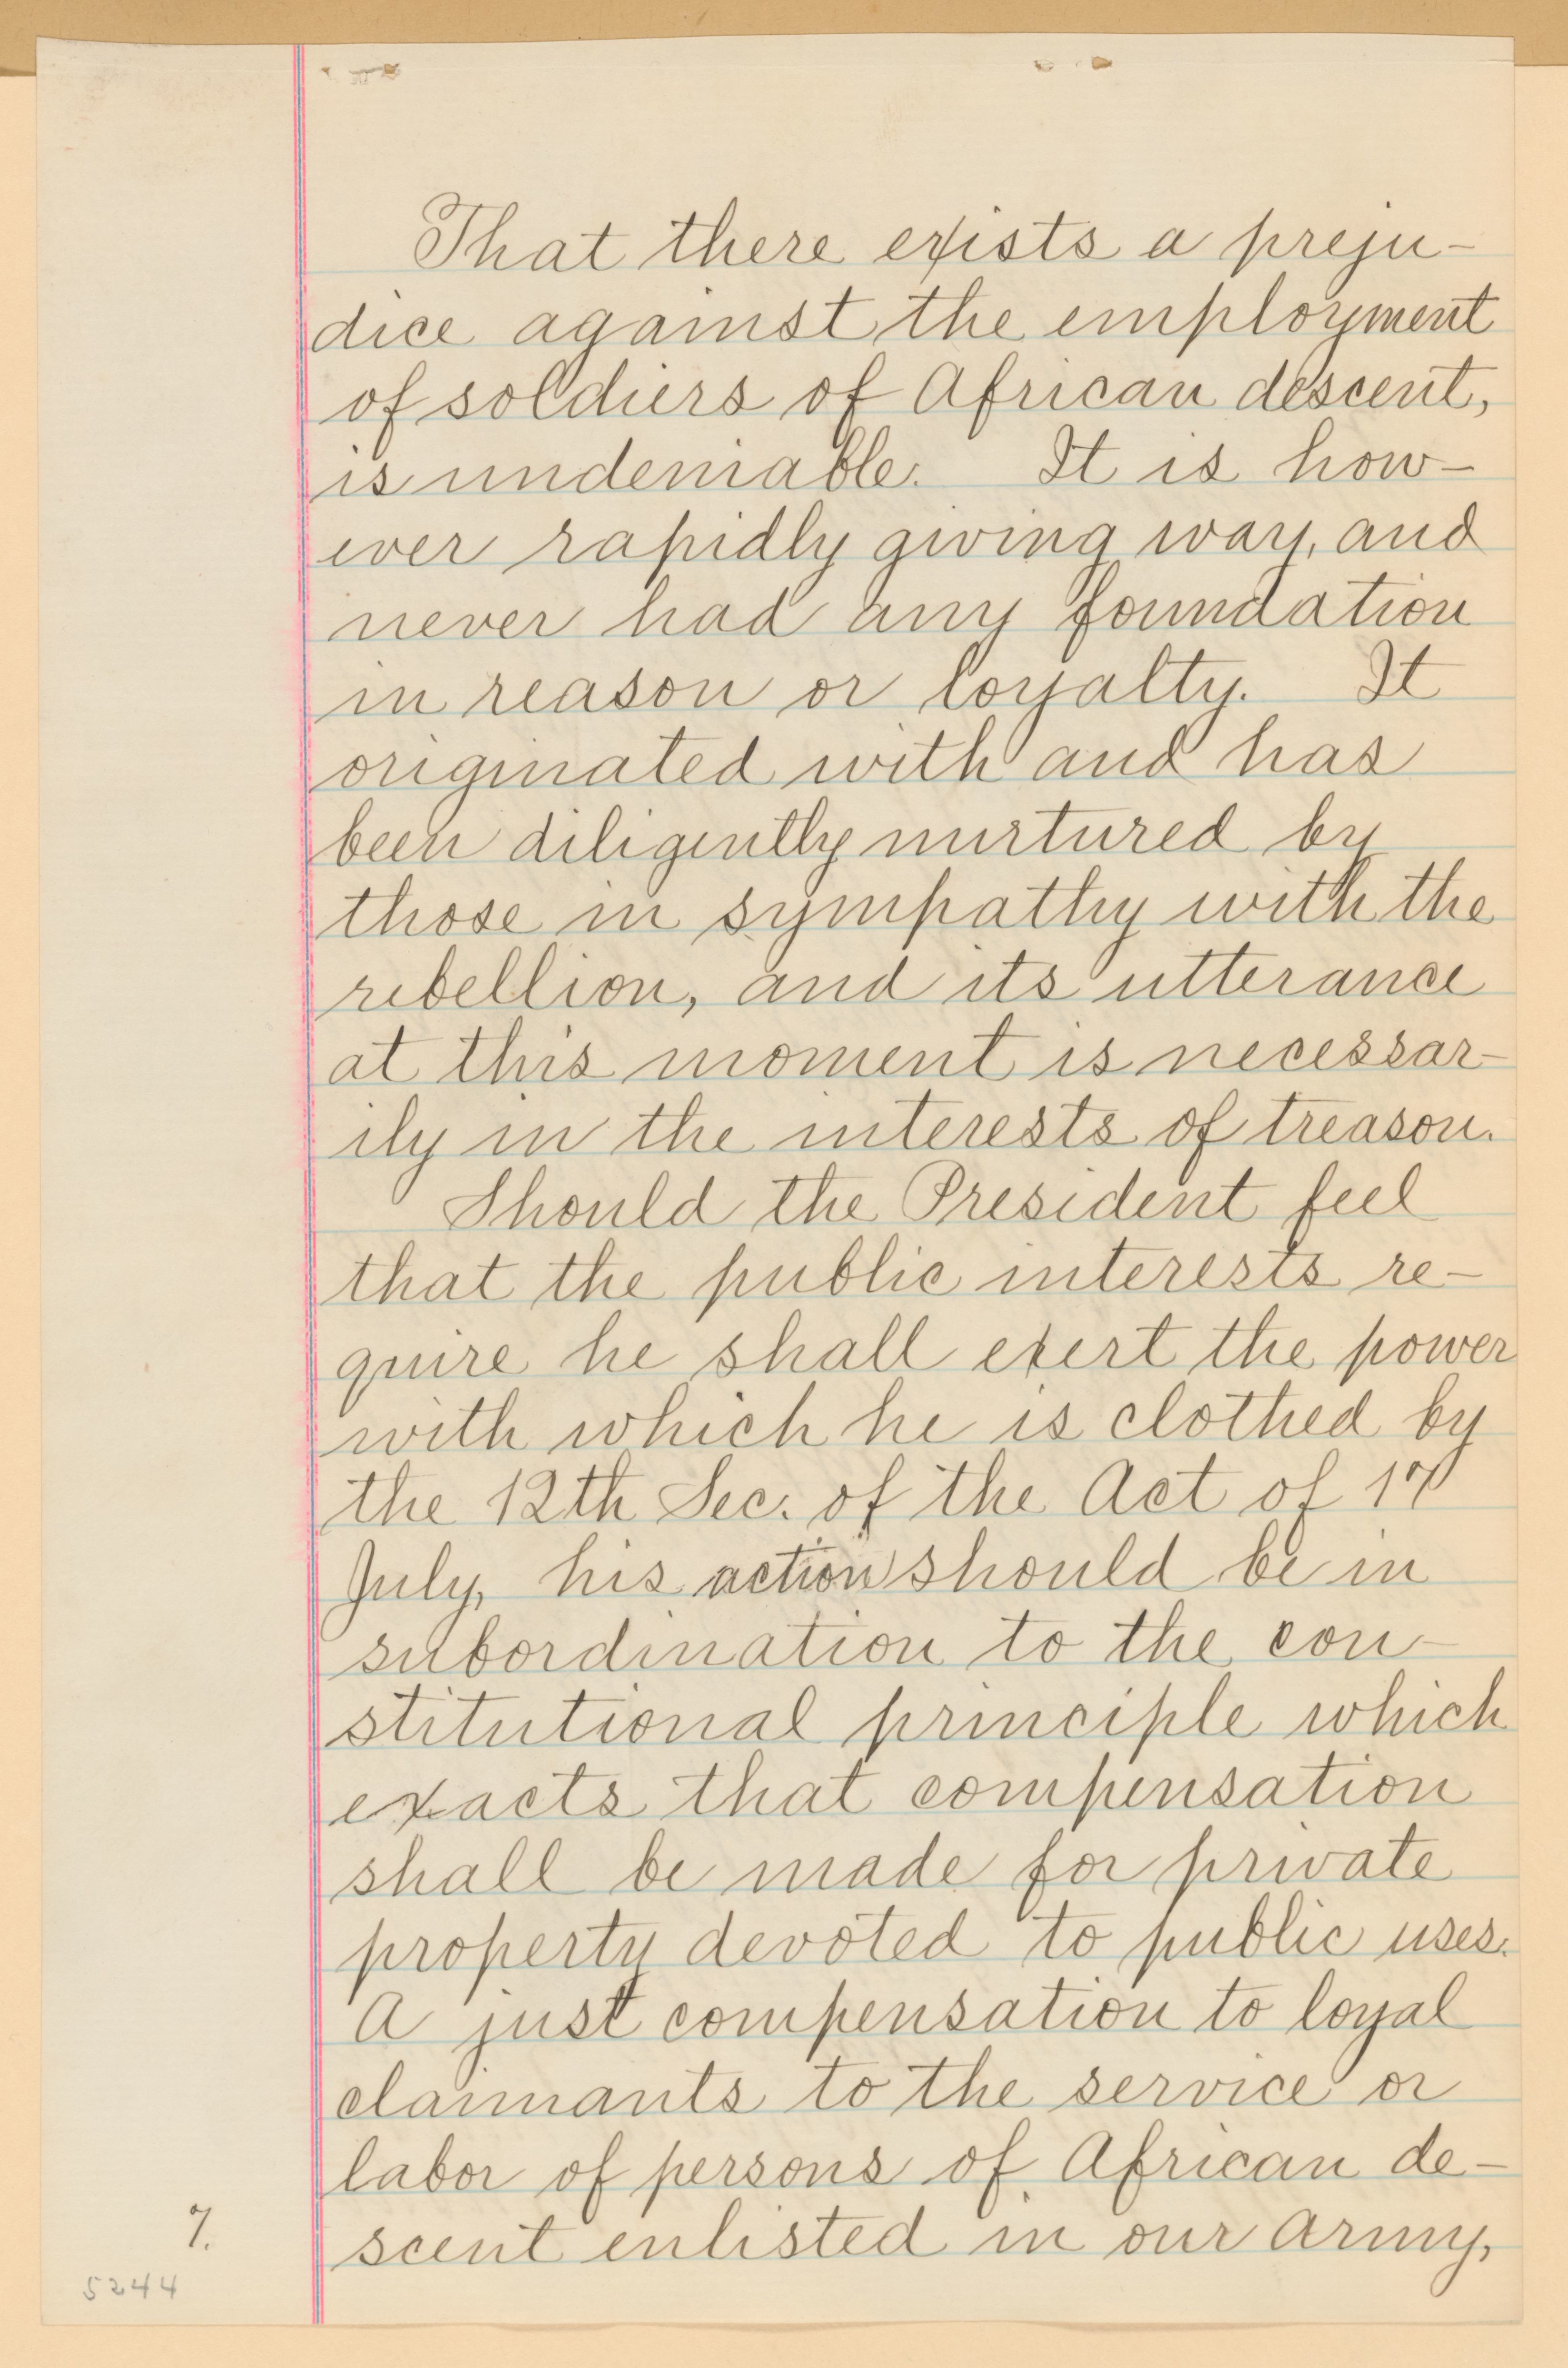 That there exists a preju-
dice against the employment
of soldiers of African descent,
is undeniable. It is how-
ever rapidly giving way, and
never had any foundation
in reason or loyalty. It
originated with and has
been diligently nurtured by
those in sympathy with the
rebellion, and its utterance
at this moment is necessar-
ily in the interests of treason.
Should the President feel
that the public interests re-
quire he shall exert the power
with which he is clothed by
the 12th Sec. of the Act of 17
July, his action should be in
subordination to the con-
stitutional principle which
exacts that compensation
shall be made for private
property devoted to public uses.
A just compensation to loyal
claimants to the service or
labor of persons of African de-
scent enlisted in our army,
7.
5244